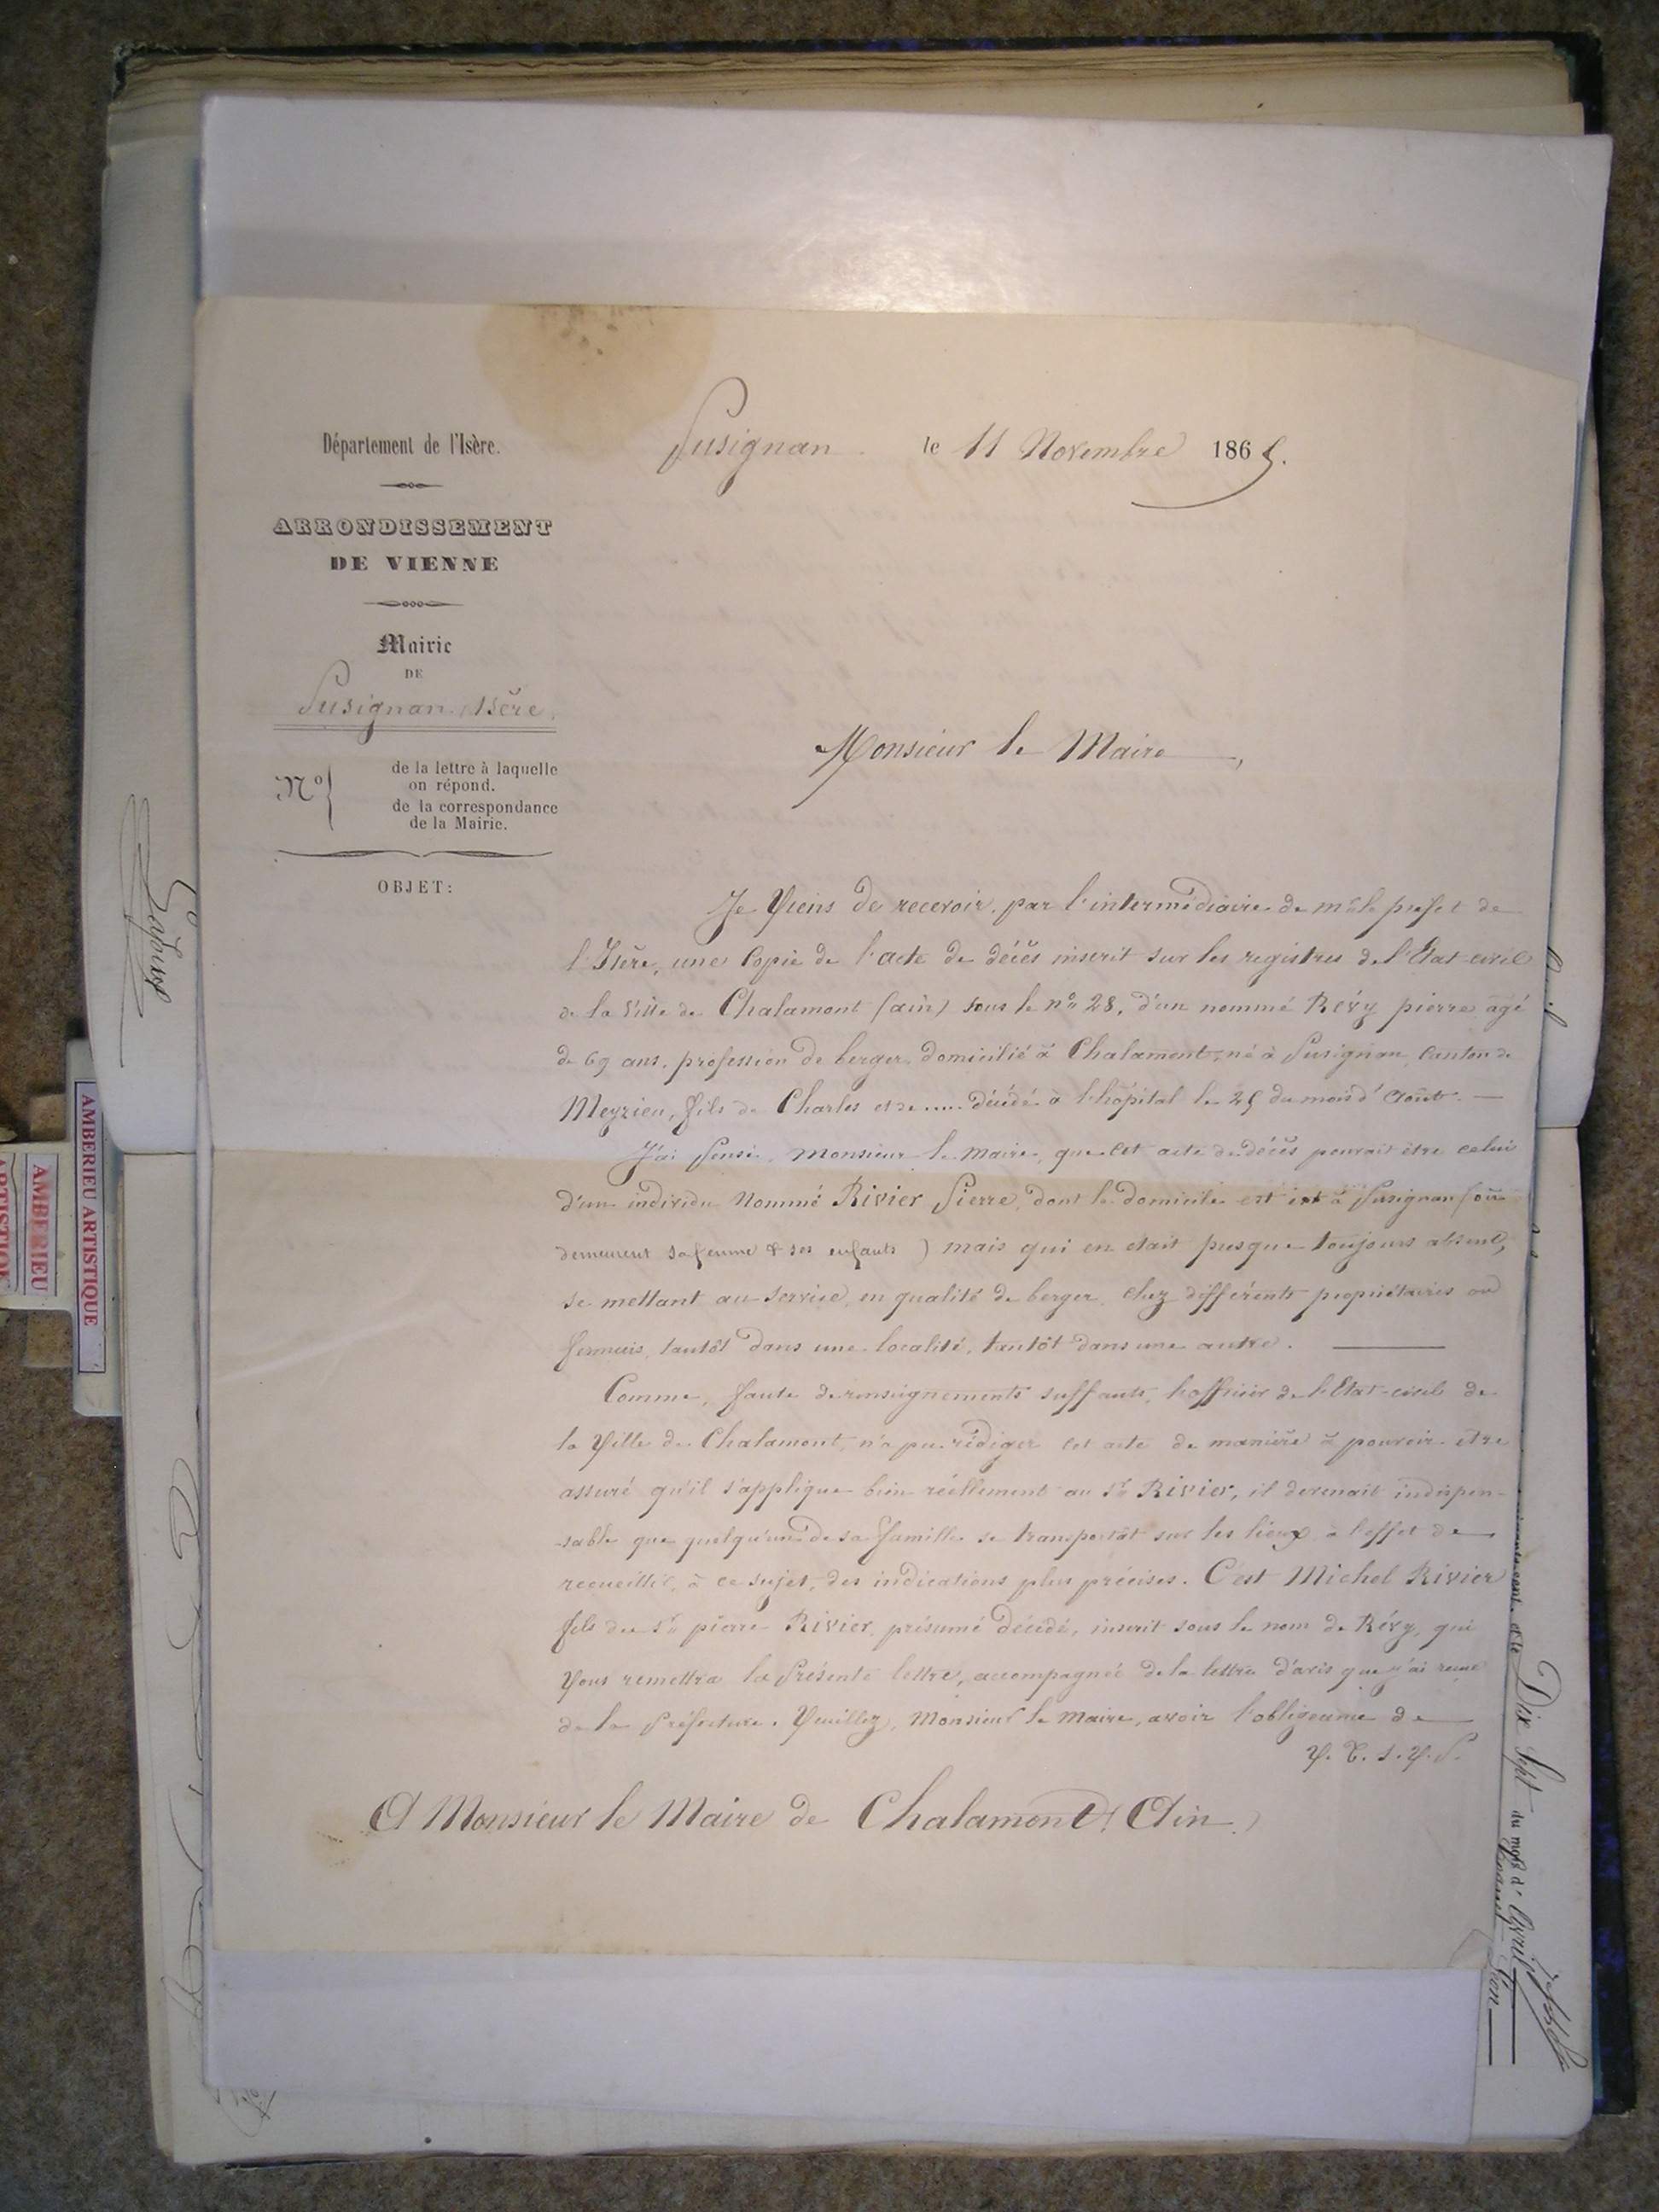 Département de l'Isère.
ARRONDISSEMENT
DE VIENNE
Mairie
DE
Pusignan (Isère)
N°
de la lettre à laquelle
on répond.
de la correspondance
de la Mairie.
OBJET:
Pusignan le 11 Novembre 1865.
Monsieur le Maire,
Je Viens de recevoir, par l'intermédiaire de mr le prefet de
l'Isère, une Copie de l'acte de décès inscrit sur les registres de l'Etat-civil
de la Ville de Chalamont (ain) sous le no 28, d'un nommé Révy pierre agé
de 69 ans, profession de berger, domicilié à Chalamont, né à Pusignan, Canton de
Meyzieu, fils de Charles et de .... décédé à l'hôpital le 25 du mois d'Août. —
J'ai Pensé, Monsieur le Maire, que cet acte de décès pouvait être celui
d'un individu Nommé Rivier Pierre, dont le domicile est à Pusignan (où
demeurent sa femme & ses enfants) mais qui en était presque toujours absent,
se mettant au service, en qualité de berger, chez différents propriétaires ou
fermiers, tantôt dans une localité, tantôt dans une autre. —
Comme, faute de renseignements suffants, l'officier de l'Etat-civil de
la Ville de Chalamont, n'a pu rédiger cet acte de manière à pouvoir être
assuré qu'il s'applique bien réellement au Sr Rivier, il devenait indispen-
-sable que quelqu'un de sa famille se transportât sur les lieux à l'effet de
recueillir, à ce sujet, des indications plus précises. C'est Michel Rivier
fils du Sr pierre Rivier, présumé décédé, inscrit sous le nom de Révy, qui
Vous remettra la Présente lettre, accompagnée de la lettre d'avis que j'ai reçue
de la Préfecture. Veuillez, Monsieur le Maire, avoir l'obligeance de
V. T. S. V. P.
A Monsieur le Maire de Chalamont (Ain)
AMBERIEU ARTISTIQUE
AMBERIEU
ARTISTIQUE
Dix Sept du mois d'Avril